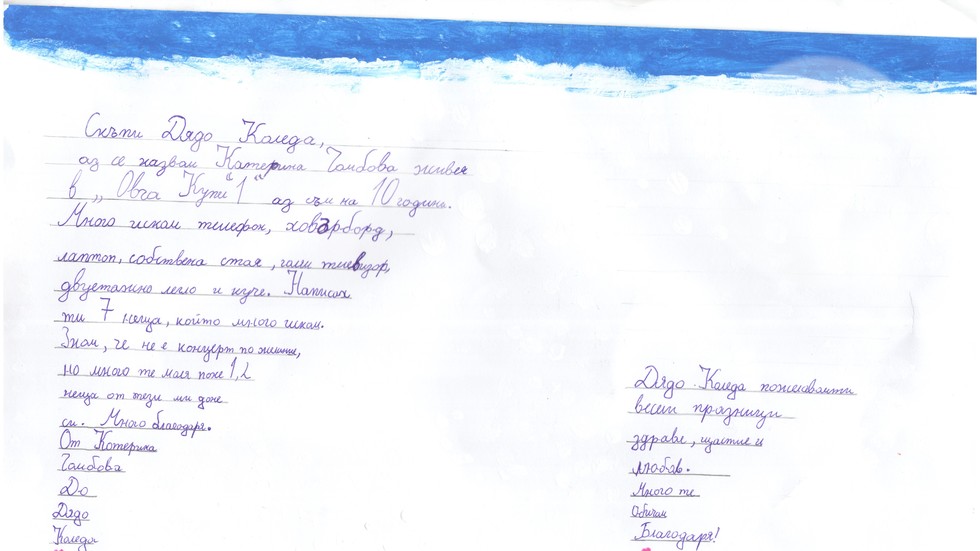 Скъпи Дядо Коледа,
аз се казвам Катерина Гамбова живея
в „Овча Купи“ 1 аз съм на 10 години.
Много искам телефон, ховърборд,
лаптоп, собствена стая, голям телевизор,
двуетажно легло и куче. Написах
ти 7 неща, който много искам.
Знам, че не е концерт по желание,
но много те моля поне 1,2
неща от тези ми доне
си. Много благодаря.
От Катерина
Гамбова
До
Дядо
Коледа
Дядо Коледа пожелавам ти
весели празници
здраве, щастие и
любов.
Много те
Обичам
Благодаря!